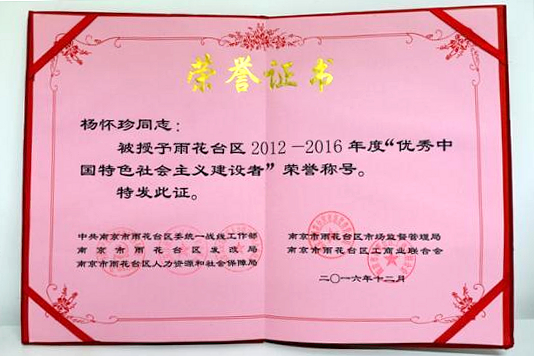 荣誉证书
杨怀珍同志：
被授予雨花台区2012－2016年度“优秀中
国特色社会主义建设者”荣誉称号。
特发此证。
中共南京市雨花台区委统一战线工作部
南京市雨花台区发改局
南京市雨花台区人力资源和社会保障局
南京市雨花台区市场监督管理局
南京市雨花台区工商业联合会
二〇一六年十二月